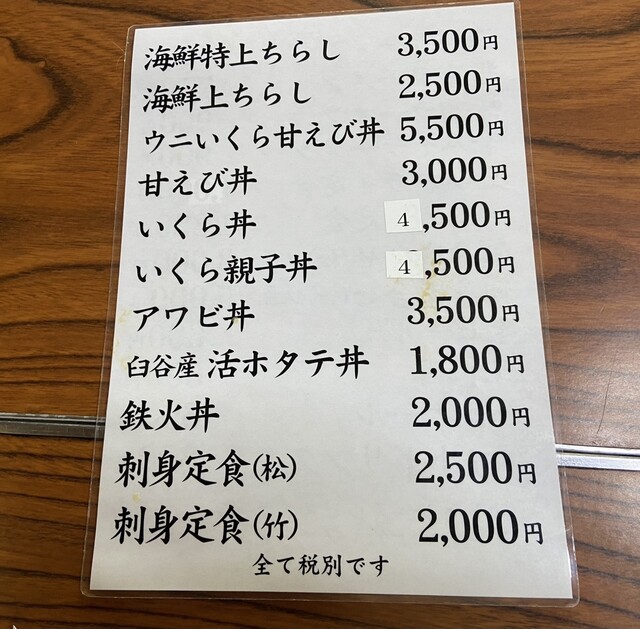 海鮮特上ちらし 3,500円
海鮮上ちらし 2,500円
ウニいくら甘えび丼 5,500円
甘えび丼 3,000円
いくら丼 4,500円
いくら親子丼 4,500円
アワビ丼 3,500円
臼谷産 活ホタテ丼 1,800円
鉄火丼 2,000円
刺身定食(松) 2,500円
刺身定食(竹) 2,000円
全て税別です